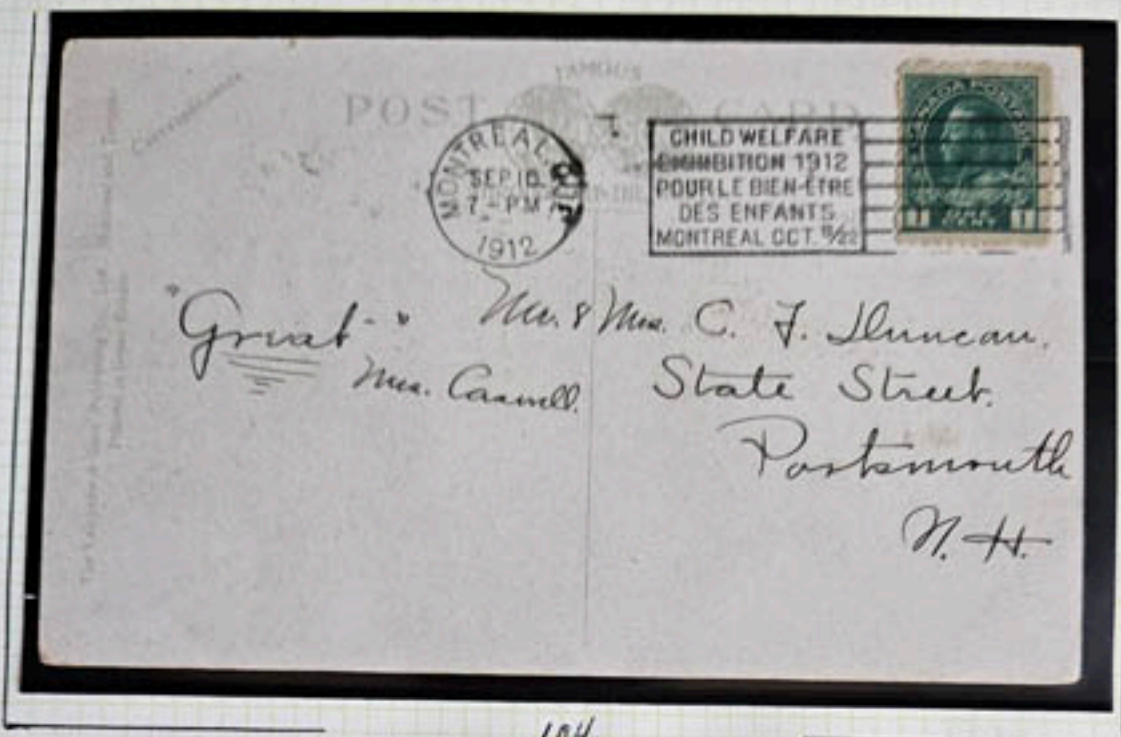 FAMOUS
POST CARD
Correspondence
MONTREAL. QUE
SEP 10
7 - PM
1912
CHILD WELFARE
EXHIBITION 1912
POUR LE BIEN-ÊTRE
DES ENFANTS
MONTREAL OCT. 8/22
CANADA POSTAGE
1 ONE CENT 1
"Great - "
Mrs. Caswell.
Mr. & Mrs. C. F. Duncan.
State Street.
Portsmouth
N. H.
The Valentine & Sons' Publishing Co., Ltd., Montreal and Toronto
Printed in Great Britain
104